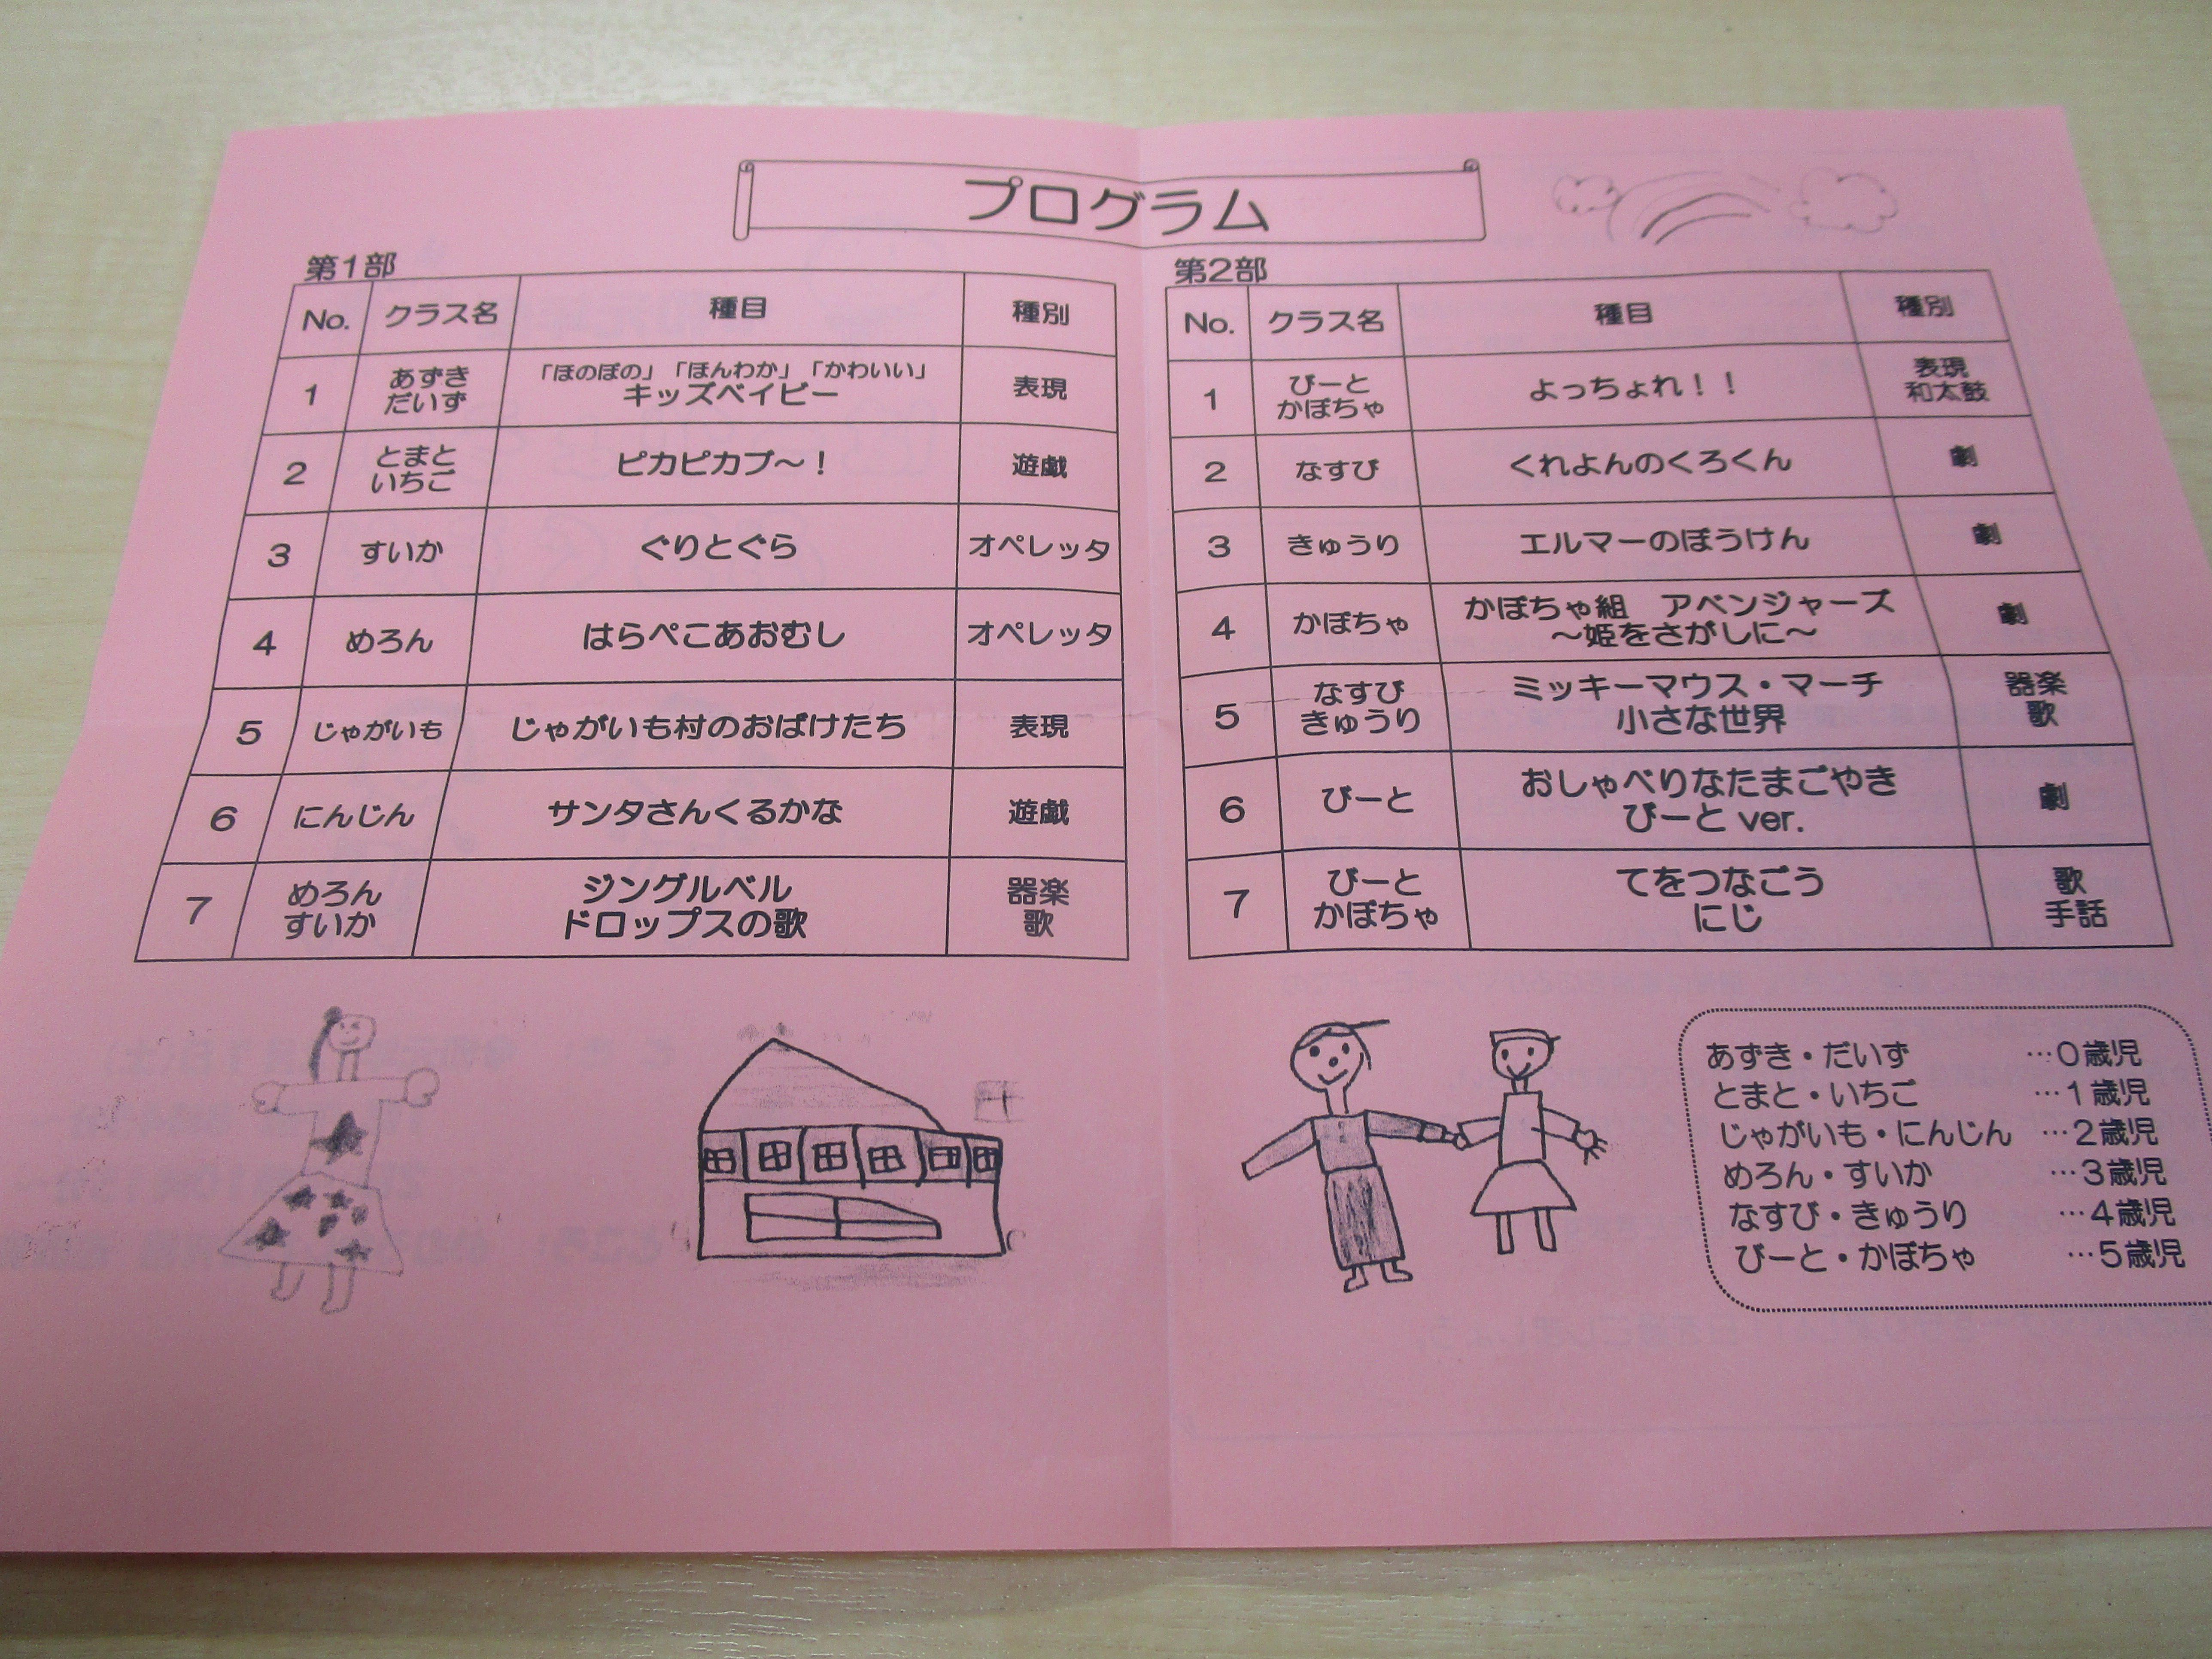 プログラム
第1部
No. クラス名 種目 種別
1 あずき だいず 「ほのぼの」「ほんわか」「かわいい」 キッズベイビー 表現
2 とまと いちご ピカピカブ～！ 遊戯
3 すいか ぐりとぐら オペレッタ
4 めろん はらぺこあおむし オペレッタ
5 じゃがいも じゃがいも村のおばけたち 表現
6 にんじん サンタさんくるかな 遊戯
7 めろん すいか ジングルベル ドロップスの歌 器楽 歌
第2部
No. クラス名 種目 種別
1 びーと かぼちゃ よっちょれ！！ 表現 和太鼓
2 なすび くれよんのくろくん 劇
3 きゅうり エルマーのぼうけん 劇
4 かぼちゃ かぼちゃ組　アベンジャーズ ～姫をさがしに～ 劇
5 なすび きゅうり ミッキーマウス・マーチ 小さな世界 器楽 歌
6 びーと おしゃべりなたまごやき びーと ver. 劇
7 びーと かぼちゃ てをつなごう にじ 歌 手話
あずき・だいず …0歳児
とまと・いちご …1歳児
じゃがいも・にんじん …2歳児
めろん・すいか …3歳児
なすび・きゅうり …4歳児
びーと・かぼちゃ …5歳児